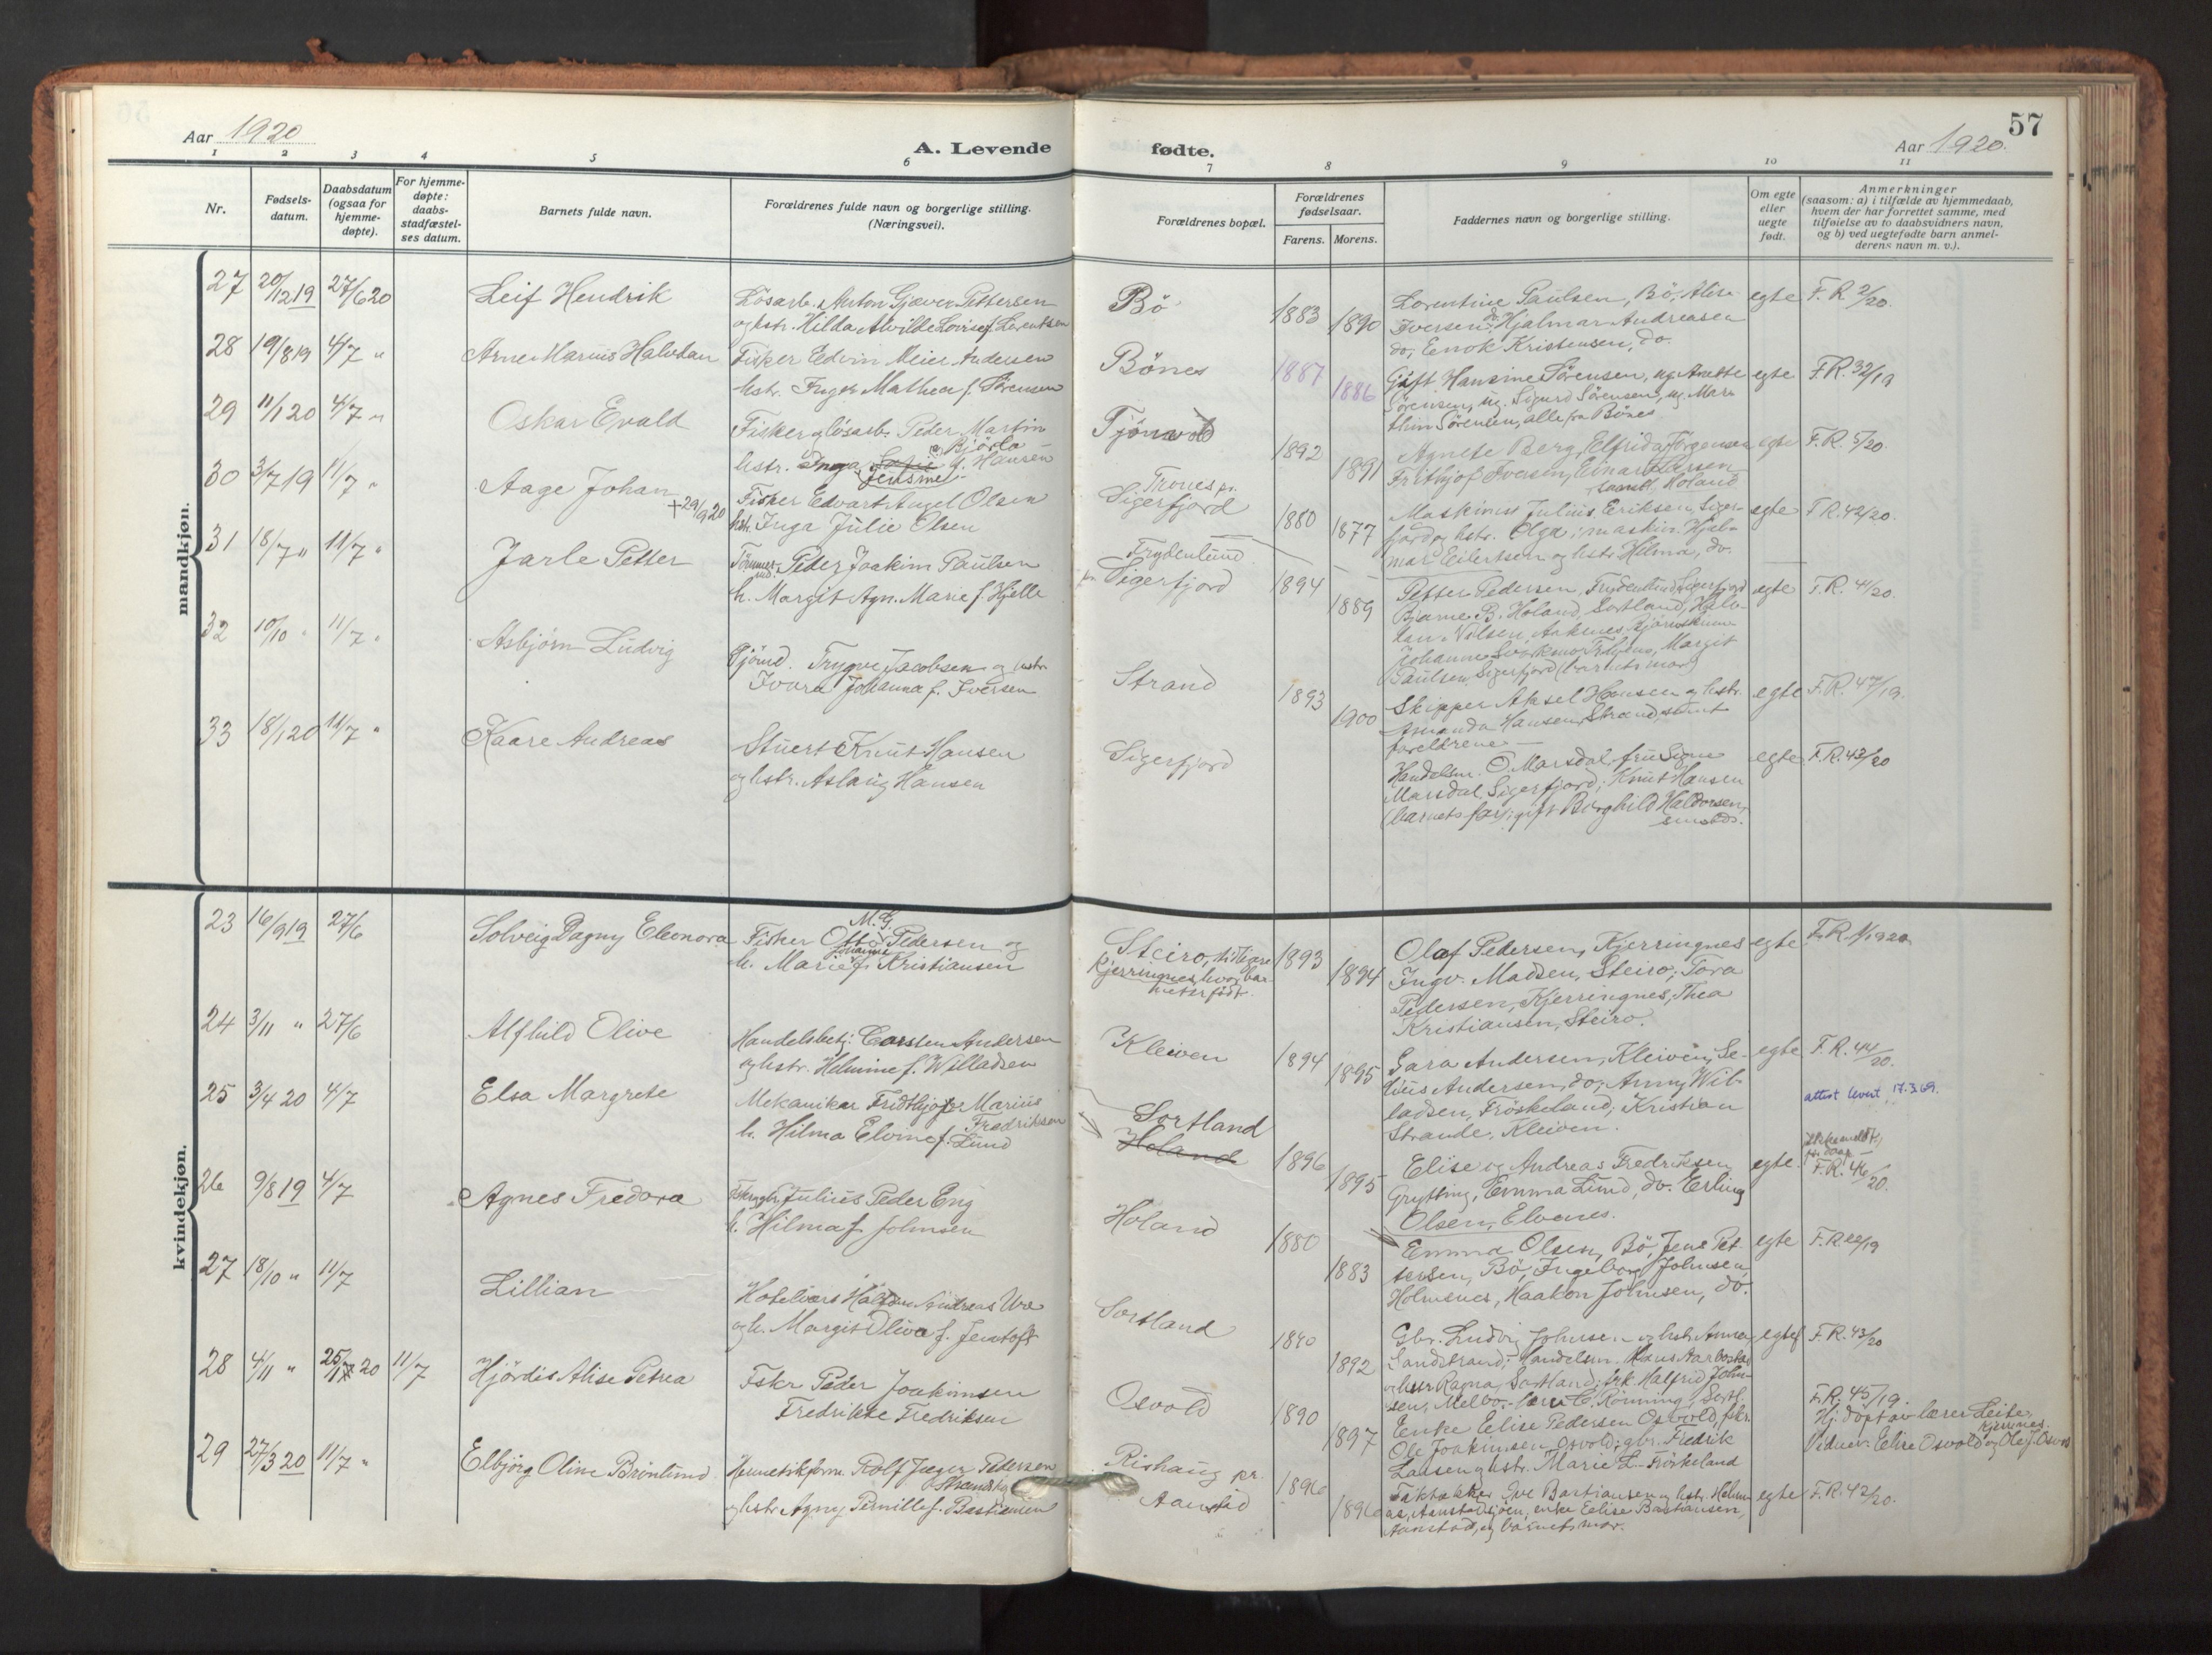 Aar 1920
A. Levende
fødte.
Aar 1920.
57
1 2 3 4 5 6 7 8 9 10 11
Nr.
Fødsels-
datum.
Daabsdatum
(ogsaa for
hjemme-
døpte).
For hjemme-
døpte:
daabs-
stadfæstel-
ses datum.
Barnets fulde navn.
Forældrenes fulde navn og borgerlige stilling.
(Næringsvei).
Forældrenes bopæl.
Forældrenes
fødselsaar.
Farens. Morens.
Faddernes navn og borgerlige stilling.
Om egte
eller
uegte
født.
Anmerkninger
(saasom: a) i tilfælde av hjemmedaab,
hvem der har forrettet samme, med
tilføielse av to daabsvidners navn,
og b) ved uegtefødte barn anmel-
derens navn m. v.).
mandkjøn.
27 20/12 19 27/6 20 Leif Hendrik
Løsarb. Anton Gjæver Pettersen
og hstr. Hilda Alvilde Lovise f. Lorentsen
Bö 1883 1890
Lorentine Paulsen, Bö, Alise
Iversen do. Hjalmar Andreasen
do, Enok Kristensen, do.
egte F. R. 2/20.
28 19/8 19 4/7 " Arne Marius Halvdan
Fisker Edvin Meier Andersen
hstr. Inger Mathea f. Sörensen
Bönes 1887 1886
Gift Hansine Sörensen, ug. Anette
Sörensen, ug. Sigurd Sörensen, ug. Mar-
thin Sörensen, alle fra Bönes
egte F.R. 32/19
29 11/1 20 4/7 " Oskar Evald
Fisker og løsarb. Peder Martin
Bjørla
hstr. Inga Sofie f. Hansen
Jensine
1892 1891
Agnete Berg, Elfrida Jörgensen
Frithjof Iversen, Einar Larsen
samtl. Holand
egte F. R. 5/20.
30 3/7 19 11/7 " Aage Johan
+29/9 20
Fisker Edvart Angel Olsen
hstr. Inga Julie Olsen
Trones pr.
Sigerfjord 1880 1877
Maskinist Julius Eriksen, Siger-
fjord og hstr. Olga; maskin. Hjal-
mar Eilertsen og hstr Hilma, do.
egte F R. 42/20.
31 18/7 " 11/7 " Jarle Petter
Tömmer- Peder Joakim Paulsen
h. Margit Agn. Marie f. Hjelle
Frydenlund
pr. Sigerfjord 1894 1889
Petter Pedersen, Frydenlund, Sigerfjord
Bjarne B. Holand, Sortland, Halv-
dan Nilsen,
Johanne Margit
Paulsen, Sigerfjord (barnets mor)
egte F. R. 41/20.
32 10/10 " 11/7 " Asbjörn Ludvig
Sjömd. Trygve Jacobsen og hstr.
Ivara Johanna f. Iversen
Strand 1893 1900
Skipper Aksel Hansen og hstr.
Amanda Hansen, Strand, samt
foreldrene
egte F. R. 47/19.
33 18/1 20 11/7 " Kaare Andreas
Stuert Knut Hansen
og hstr. Aslaug Hansen
Sigerfjord
Handelsm. O. Marsdal, frue Signe
Marsdal, Sigerfjord; Knut Hansen
(barnets far); gift Borghild Haldorsen,
smstds.
egte F. R. 43/20
kvindekjøn.
23 16/9 19 27/6 Solveig Dagny Eleonora
M. G.
Fisker Otto Pedersen og
Johanne
h. Marie f. Kristiansen
Steiro, tidligere
Kjerringnes, hvor bar-
net er født.
1893 1894
Olaf Pedersen, Kjerringnes
Ingv. Madsen, Steiro; Tora
Pedersen, Kjerringnes, Thea
Kristiansen, Steiro.
egte F. R. 1/1920.
24 3/11 " 27/6 Alfhild Olive
Handelsbetj. Carsten Andersen
og hstr. Helmine f. Willadsen
Kleiven 1894 1895
Sara Andersen, Kleiven, Se-
lius Andersen, do, Anny Wil-
ladsen, Fröskeland; Kristian
Strande, Kleiven.
egte F. R. 44/20.
25 3/4 20 4/7 Elsa Margrete
Mekaniker Fridthjof Marius
Fredriksen
h. Hilma Elvine f. Lund
Sortland
Holand 1896 1895
Elise og Andreas Fredriksen
Grytting, Emma Lund, do. Erling
Olsen, Elvenes.
egte
attest levert 17.3.69.
F. R. 46/20.
26 9/8 19 4/7 Agnes Fredora
Julius Peder Eng
h. Hilma f. Johnsen
Holand 1880 1883
Emma Olsen, Bö, Jens Pet-
tersen, Bö, Ingeborg Johnsen,
Holmenes, Haakon Johnsen, do.
egte F. R. 22/19
27 18/10 " 11/7 Lillian
Hotelvert Andreas Ure
og h. Margit Oliva f. Jentoft
Sortland 1890 1892
Gbr. Ludvig Johnsen og hstr. Anna
Sandstrand; Handelsm. Hans
og hstr Ragna, Sortland; frk. Halfrid John-
sen, Melbo, C. Rönning, Sortl.
egte F. R. 43/20
28 4/11 " 25/ 20 11/7 Hjördis Alise Petrea
Fskr Peder Joakimsen
Fredrikke Fredriksen
Osvold 1890 1897
Enke Elise Pedersen Osvold, fskr.
Ole Joakimsen Osvold; gbr. Fredrik
Larsen og hstr. Marie L. Fröskeland
F. R. 45/19.
Hj. döpt av lærer Leite,
Kjerrnes.
Vidner: Elise Osvold og Ole J. Osvold
29 27/3 20 11/7 " Elbjörg Oline Brönlund
Hermetikform. Rolf Jæger Pedersen
Strandskog
og hstr Agny Pernille f. Bastiansen
Rishaug pr.
Aanstad 1896 1896
Ove Bastiansen og hstr. Helene
Aanstadsjöen, enke Elise Bastiansen,
Aanstad, og barnets mor.
egte F. R. 42/20.